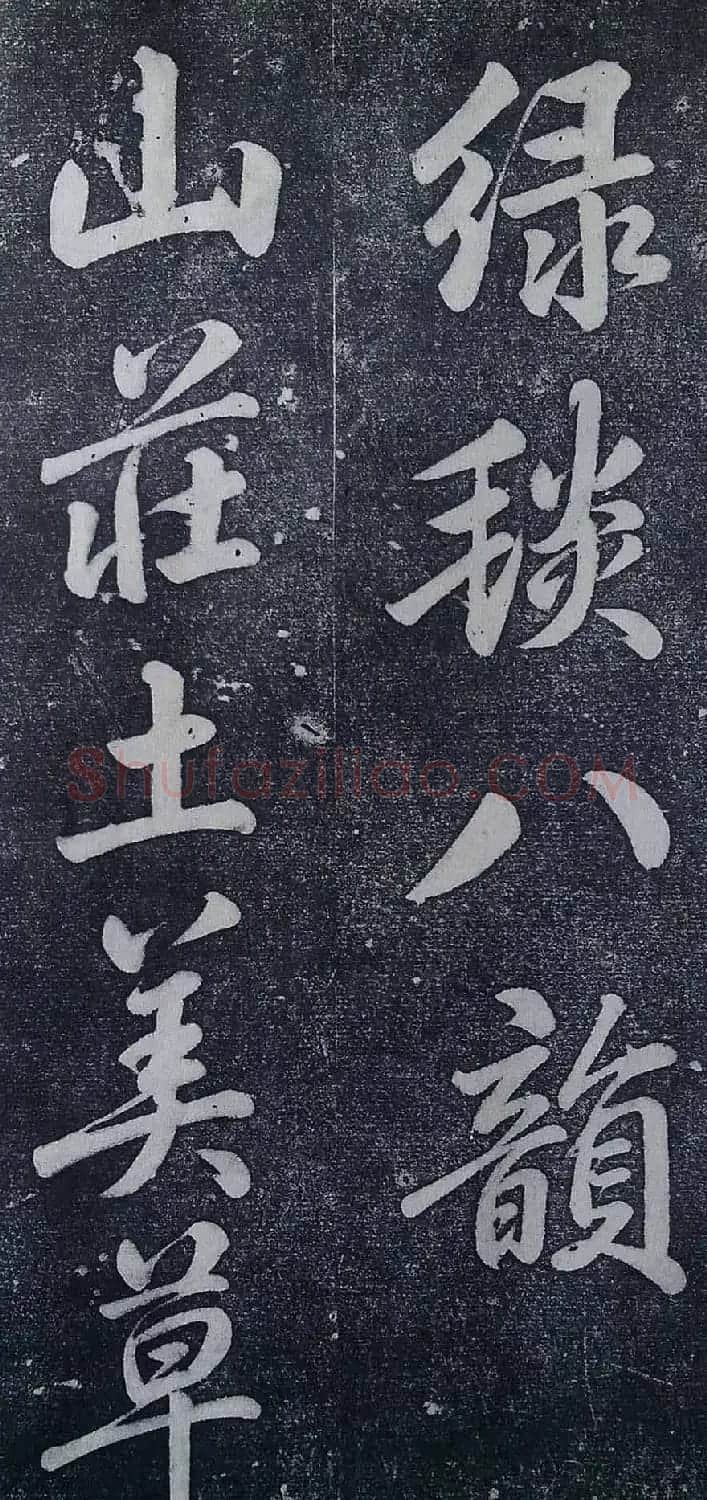 緑毯八韻
山莊土美草
Shufaziliao.COM